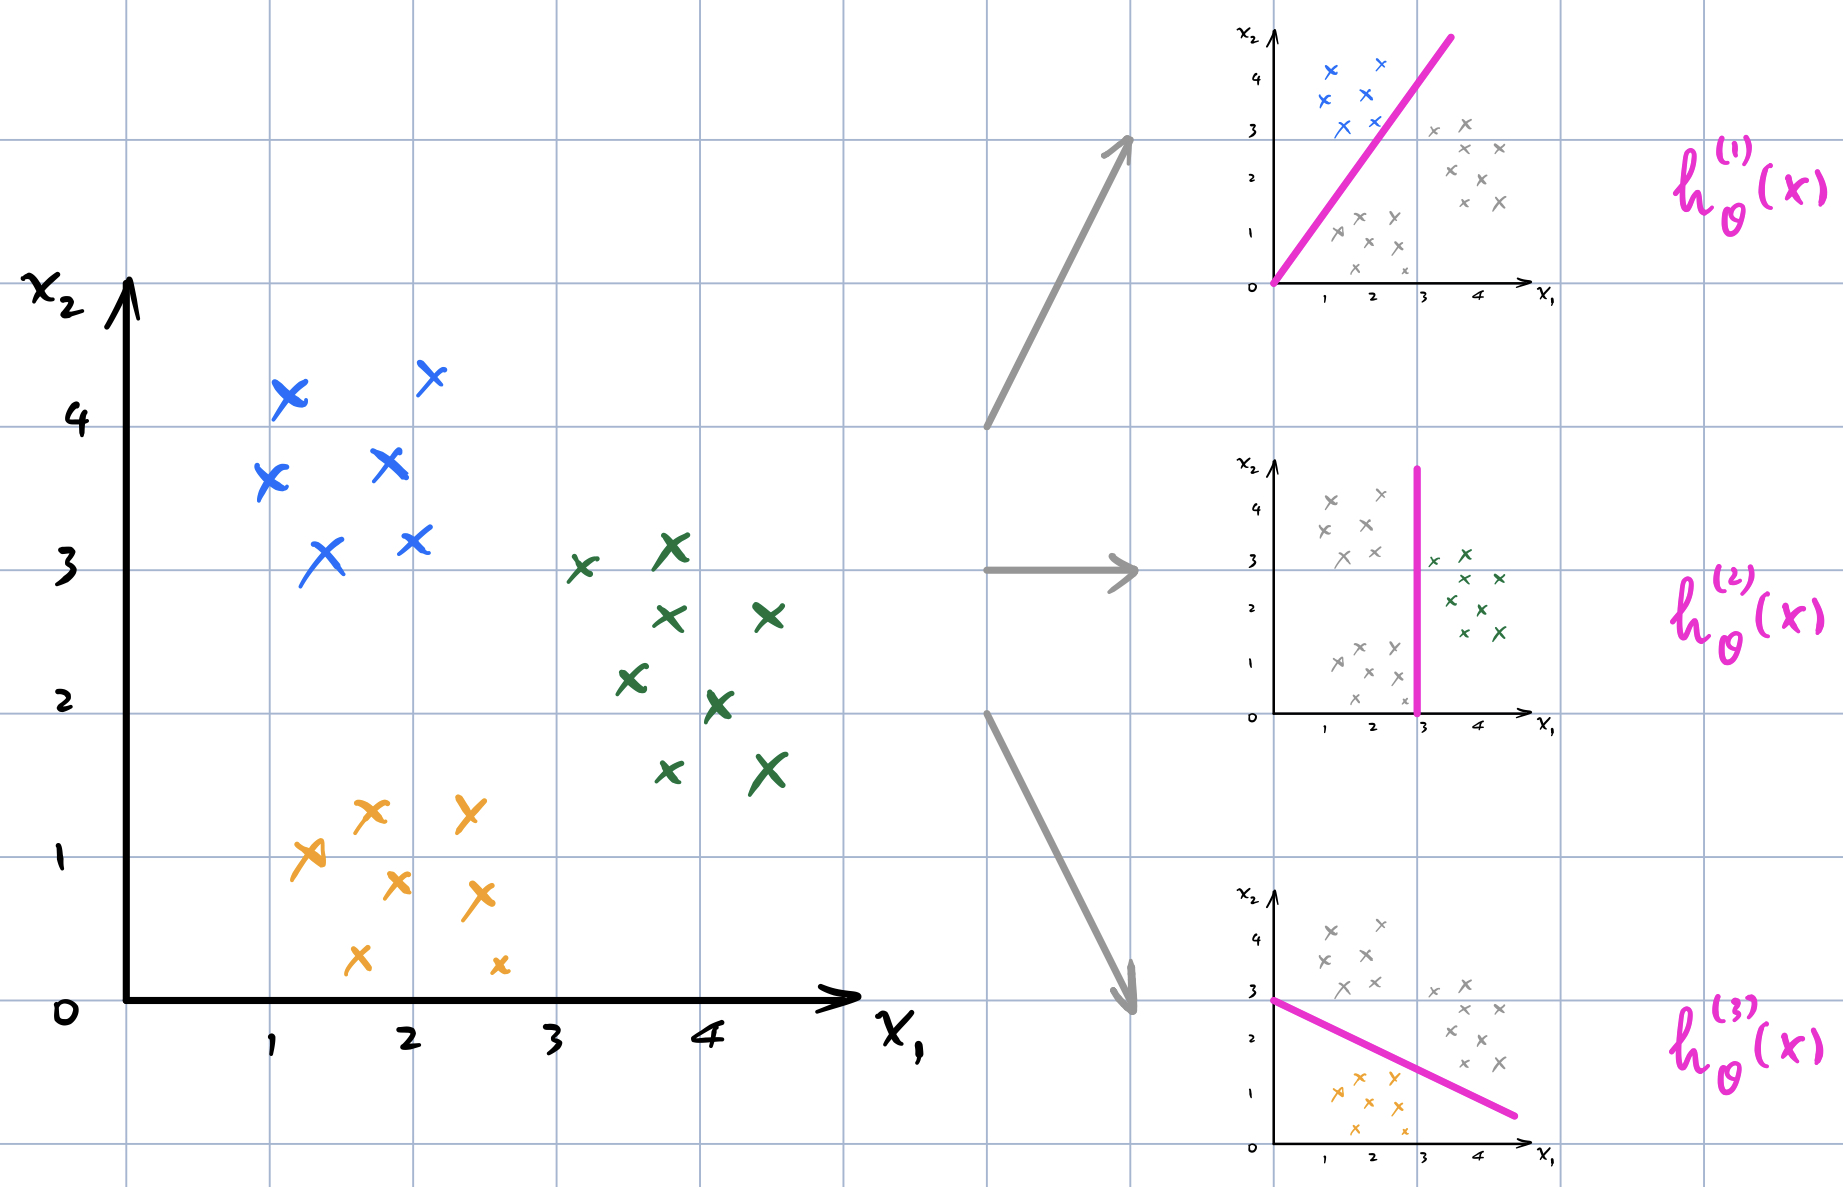 x₂
4
3
2
1
0
1 2 3 4 x₁
x₂
4
3
2
1
0
1 2 3 4 x₁
h_θ^(1)(x)
x₂
4
3
2
1
0
1 2 3 4 x₁
h_θ^(2)(x)
x₂
4
3
2
1
0
1 2 3 4 x₁
h_θ^(3)(x)